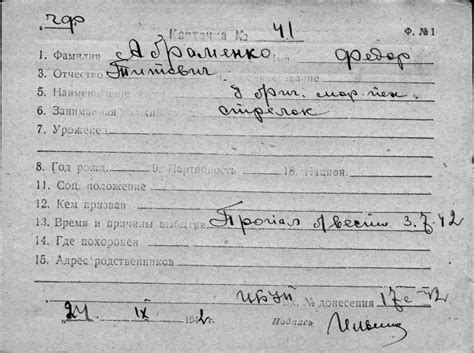 чф.
Карточка № 41
Ф. №1
1. Фамилия Абраменко Федор
3. Отчество Титович
5. Наименование бриг. мор. пех.
6. Занимаемая стрелок
7. Уроженец
8. Год рожд. 9. Партийность 10. Национ.
11. Соц. положение
12. Кем призван
13. Время и причины выбытия Пропал без вести 3.7.42
14. Где похоронен
15. Адрес родственников
№ донесения
24 IX 1942 Подпись